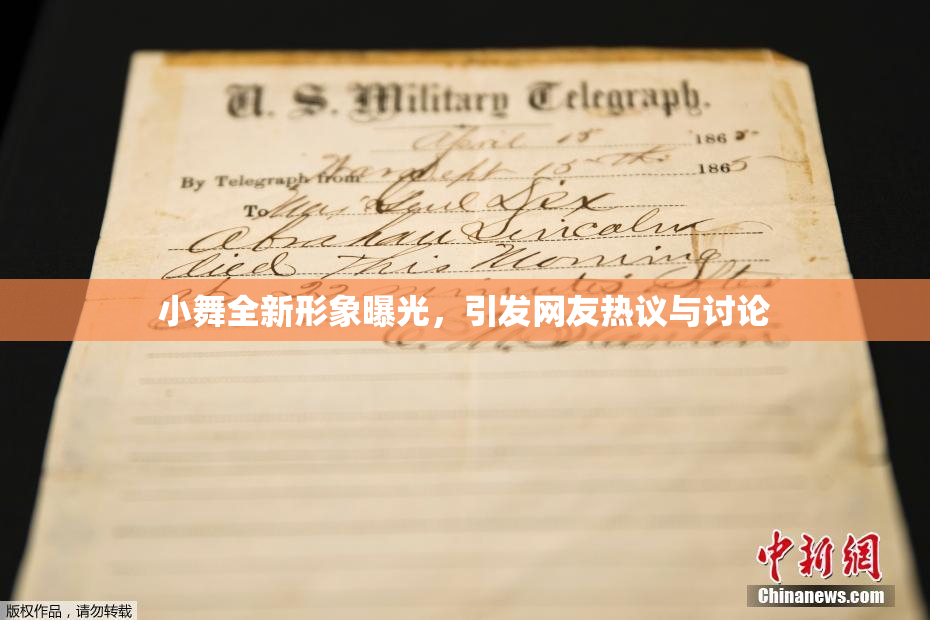 U. S. Military Telegraph.
April 15 1865
By Telegraph from War Dept 15th 1865
To Maj Genl Dix
Abraham Lincoln
died This Morning
at 22 minutes After
小舞全新形象曝光，引发网友热议与讨论
E. M. Stanton
中新网
Chinanews.com
版权作品，请勿转载